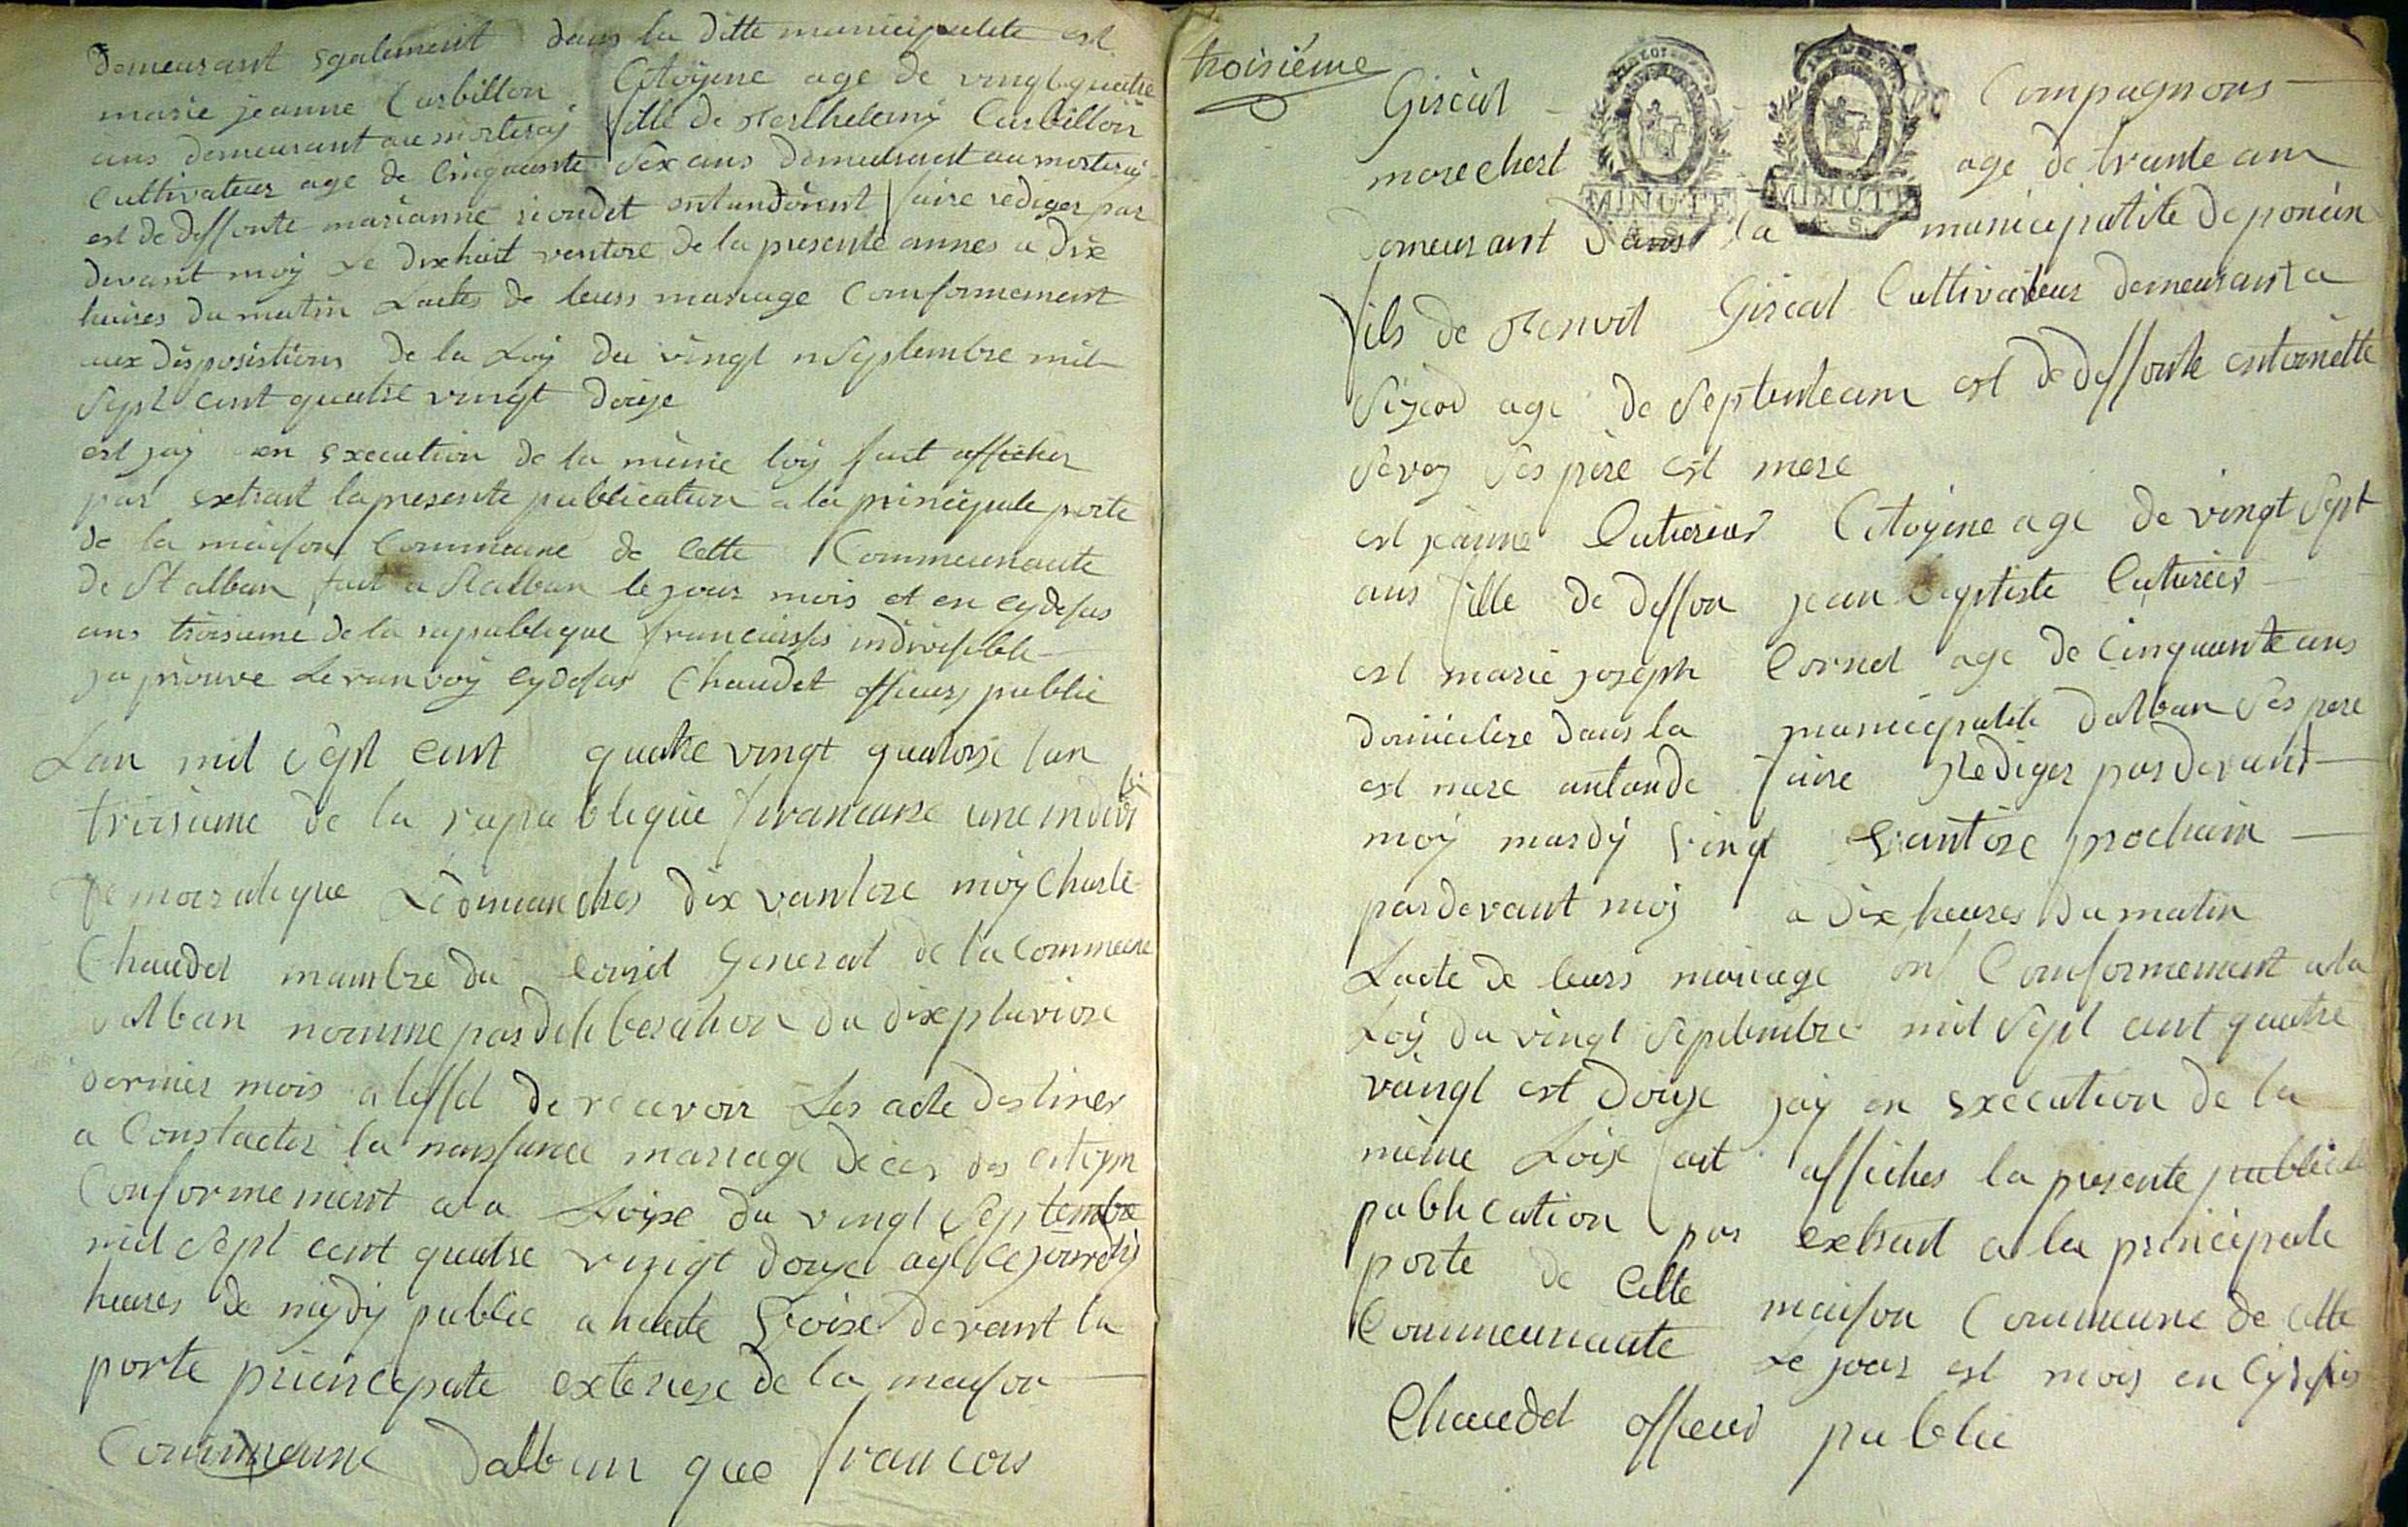 demeurant egalement dans la ditte municipalite est
marie jeanne Curbillon Citoyene age de vingt quatre
ans demeurant au morteray fille de Berthelemy Curbillon
Cultivateur age de Cinquante Six ans demeurant au morteray
est de deffonte marianne rioudet entanderent faire rediger par
devant moy Le dixhuit ventose de la presente annes a dix
heures du matin Lactes de leurs mariage Conformement
aux disposistions de la Loy du vingt nSeptembre mil
Sept cent quatre vingt douze
est jay en execution de la mème loy fait afficher
par extrait la presente publication a la principale porte
de la maison Commeune de Cette Commeunaute
de St alban fait a St alban le jour mois et en cydesus
ans troisieme de la republique francaisse indivisible
japrouve Le ranvoy cydesus Chaudet officier public
Lan mil Sept cent quatre vingt quatorze lan
troisieme de la republique francaise une indivi
Le dimanches dix vantose moy Charle
Chaudet mambre du Consil General de la Commeune
dalban nomme par deliberation du dix pluviose
dernier mois a leffet de recevoir Les acte destiner
a Constacter la nonssance mariage deces des citoyen
Conformement a la Loixe du vingt Septembre
mil Sept cent quatre vingt douze ay ce jourdhy
heures de mydy public a haute Voixe devant la
porte principale exterieze de la maison
Commeune dalban que francois
troisième
Giscal Compagnons
marechert age de trante ans
MINUTE MINUTE
demeurant dans la municipalite de poncin
fils de Benoit Giscal Cultivateur demeurant a
age de Septente ans est de deffonte entoinette
Ses pere est mere
est jeanne Cuturier Citoyene age de vingt Sept
ans fille de deffon jean Baptiste Cuturier
est marie joseph Cornet age de Cinquante ans
domiciliere dans la municipalite dalban Ses pere
est mere antande faire Rediger par devant
moy mardy Vingt Vantose prochain
par devant moy a dix heures du matin
Lacte de leurs mariage Conformement a la
Loy du vingt Septembre mil Sept cent quatre
vaingt est douze jay en execution de la
mème Loix fait affiches la presente
publication par extrait a la principale
porte de Cette maison Commeune de Cette
Commeunaute Le jour est mois en Cydesus
Chaudet officier public